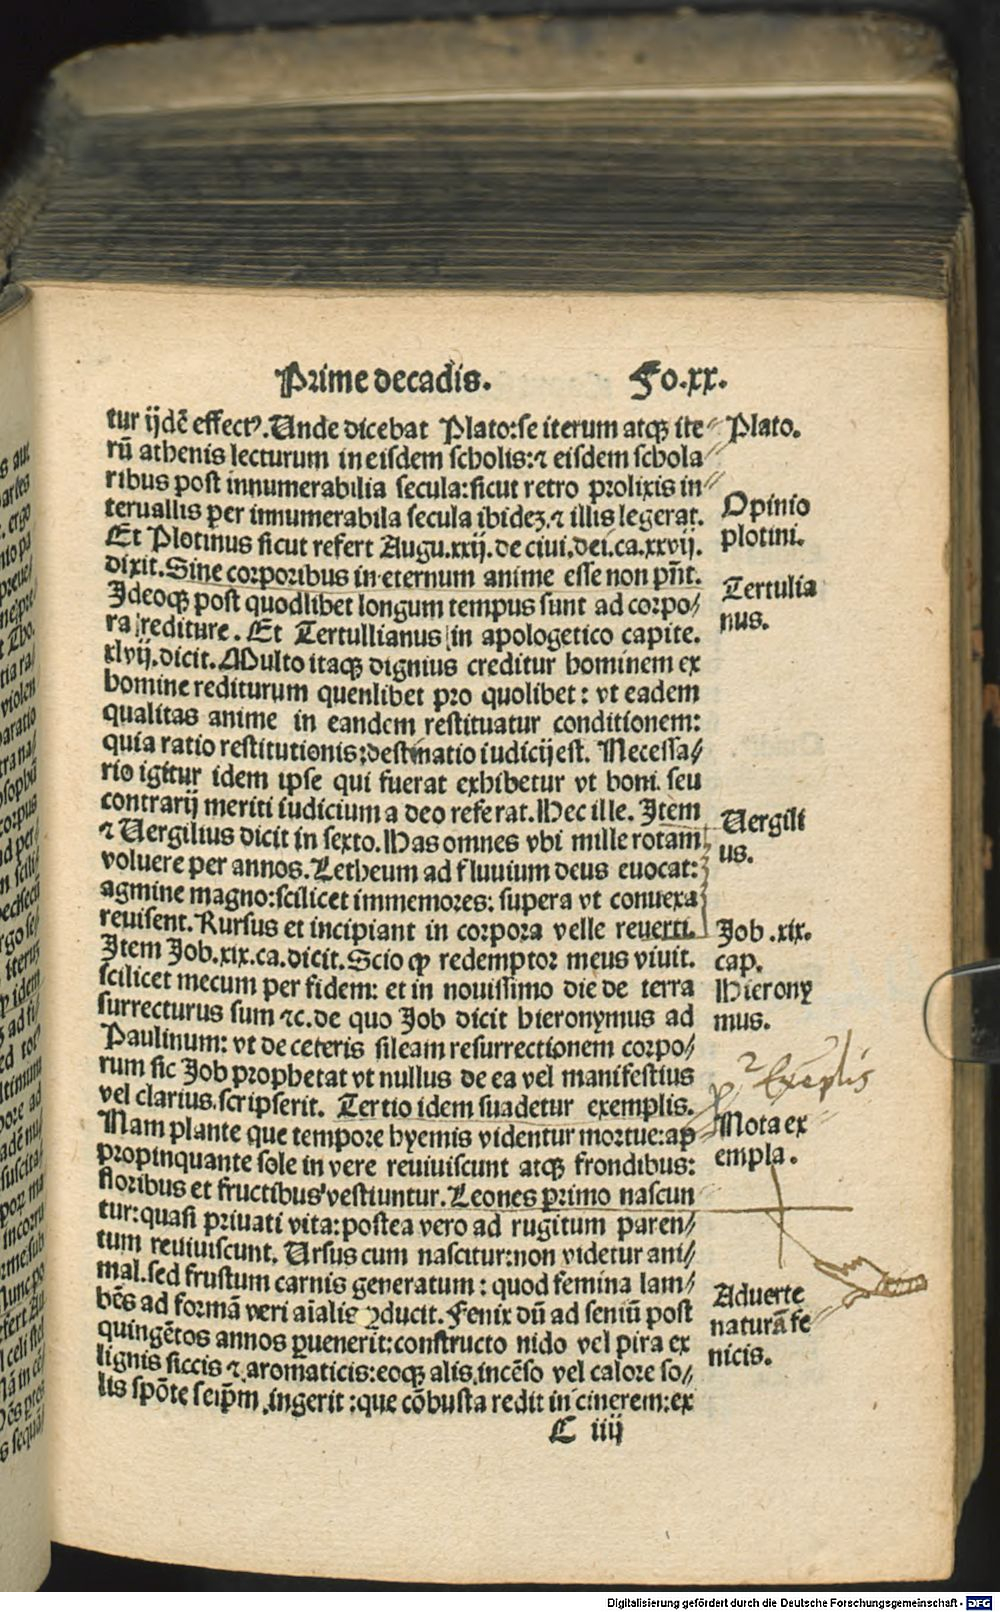 Prime decadis. Fo.xx.
tur ijdẽ effectꝰ. Unde dicebat Plato: se iterum atqꝫ ite⸗
rũ athenis lecturum in eisdem scholis: ⁊ eisdem schola⸗
ribus post innumerabilia secula: sicut retro prolixis in⸗
teruallis per innumerabila secula ibidez, ⁊ illis legerat.
Et Plotinus sicut refert Augu. xxij. de ciui. dei. ca. xxvij.
dixit. Sine corporibus in eternum anime esse non pñt.
Ideoqꝫ post quodlibet longum tempus sunt ad corpo⸗
ra rediture. Et Tertullianus in apologetico capite.
xlvij. dicit. Multo itaqꝫ dignius creditur hominem ex
homine rediturum quenlibet pro quolibet: vt eadem
qualitas anime in eandem restituatur conditionem:
quia ratio restitutionis: destinatio iudicij est. Necessa⸗
rio igitur idem ipse qui fuerat exhibetur vt boni seu
contrarij meriti iudicium a deo referat. Hec ille. Item
⁊ Uergilius dicit in sexto. Has omnes vbi mille rotam
voluere per annos. Letheum ad fluuium deus euocat:
agmine magno: scilicet immemores: supera vt conuexa
reuisent. Rursus et incipiant in corpora velle reuerti.
Item Job. xix. ca. dicit. Scio qꝙ redemptor meus viuit.
scilicet mecum per fidem: et in nouissimo die de terra
surrecturus sum ⁊c. de quo Job dicit hieronymus ad
Paulinum: vt de ceteris sileam resurrectionem corpo⸗
rum sic Job prophetat vt nullus de ea vel manifestius
vel clarius scripserit. Tertio idem suadetur exemplis.
Nam plante que tempore hyemis videntur mortue: ap
propinquante sole in vere reuiuiscunt atqꝫ frondibus:
floribus et fructibus vestiuntur. Leones primo nascun
tur: quasi priuati vita: postea vero ad rugitum paren⸗
tum reuiuiscunt. Ursus cum nascitur: non videtur ani⸗
mal. sed frustum carnis generatum: quod femina lam⸗
bẽs ad formã veri aĩalis ꝓducit. Fenix dũ ad seniũ post
quingẽtos annos ꝑuenerit: constructo nido vel pira ex
lignis siccis ⁊ aromaticis: eoqꝫ alis incẽso vel calore so⸗
lis spõte seip̃m ingerit: que cõbusta redit in cinerem: ex
C iiij
Plato.
Opinio
plotini.
Tertulia
nus.
Uergili
us.
Job .xix.
cap.
Hierony
mus.
Exẽplis
Nota ex
empla.
Aduerte
naturã fe
nicis.
Digitalisierung gefördert durch die Deutsche Forschungsgemeinschaft - DFG